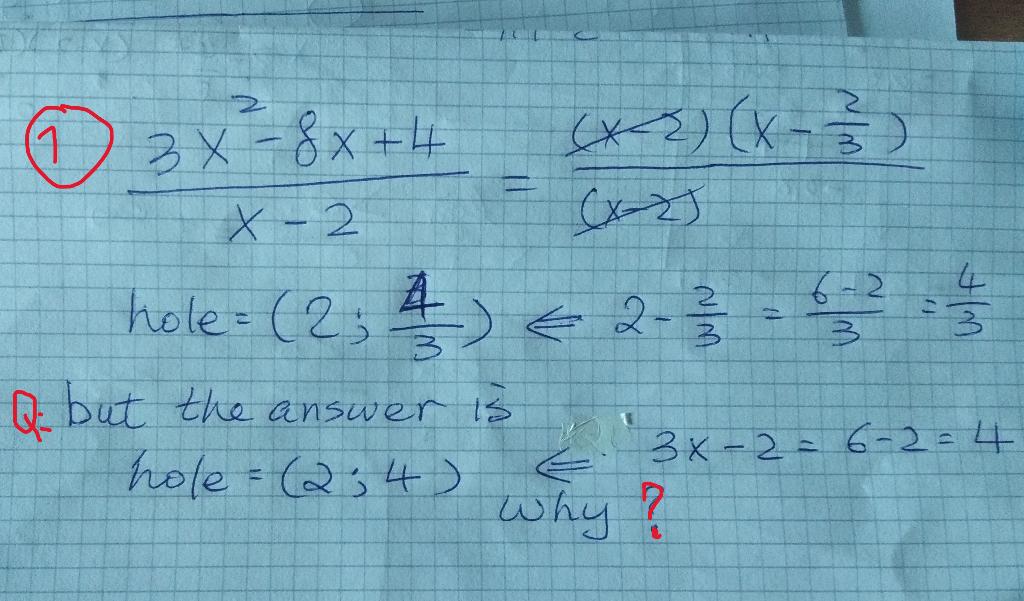 ① 3x²-8x+4 / x-2 = (x-2)(x-2/3) / (x-2)
hole = (2; 4/3) ⇐ 2-2/3 = 6-2/3 = 4/3
Q: but the answer is
hole = (2; 4) ⇐ 3x-2 = 6-2 = 4
why ?